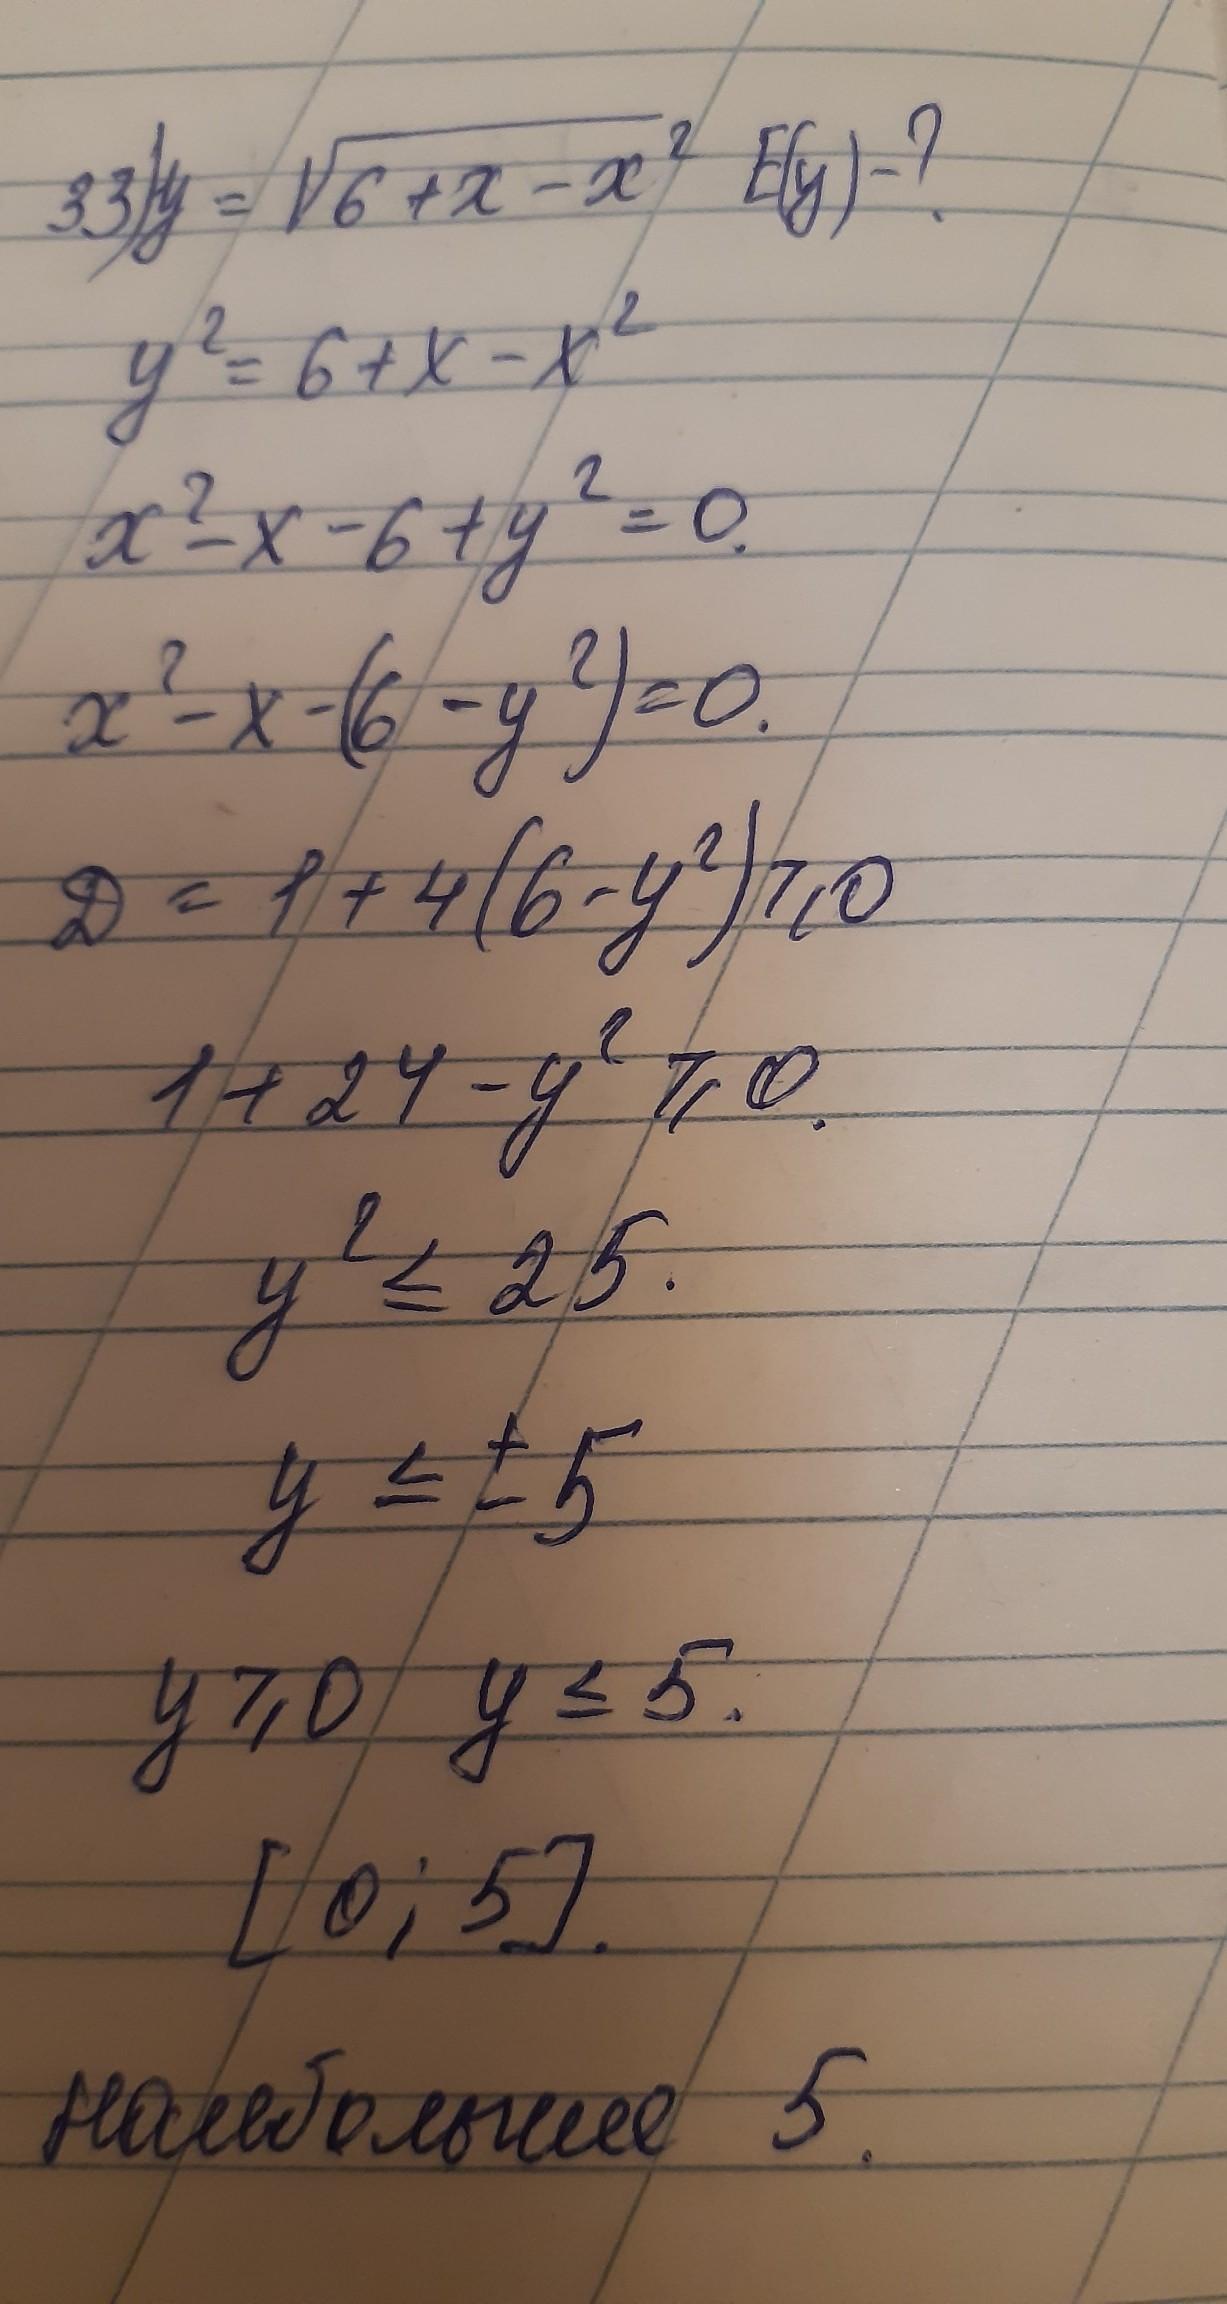 33) y = √6 + x - x² E(y) - ?
y² = 6 + x - x²
x² - x - 6 + y² = 0.
x² - x - (6 - y²) = 0.
D = 1 + 4(6 - y²) ⩾ 0
1 + 24 - y² ⩾ 0.
y² ≤ 25.
y ≤ ± 5
y ⩾ 0 y ≤ 5.
[0; 5].
наибольшее 5.